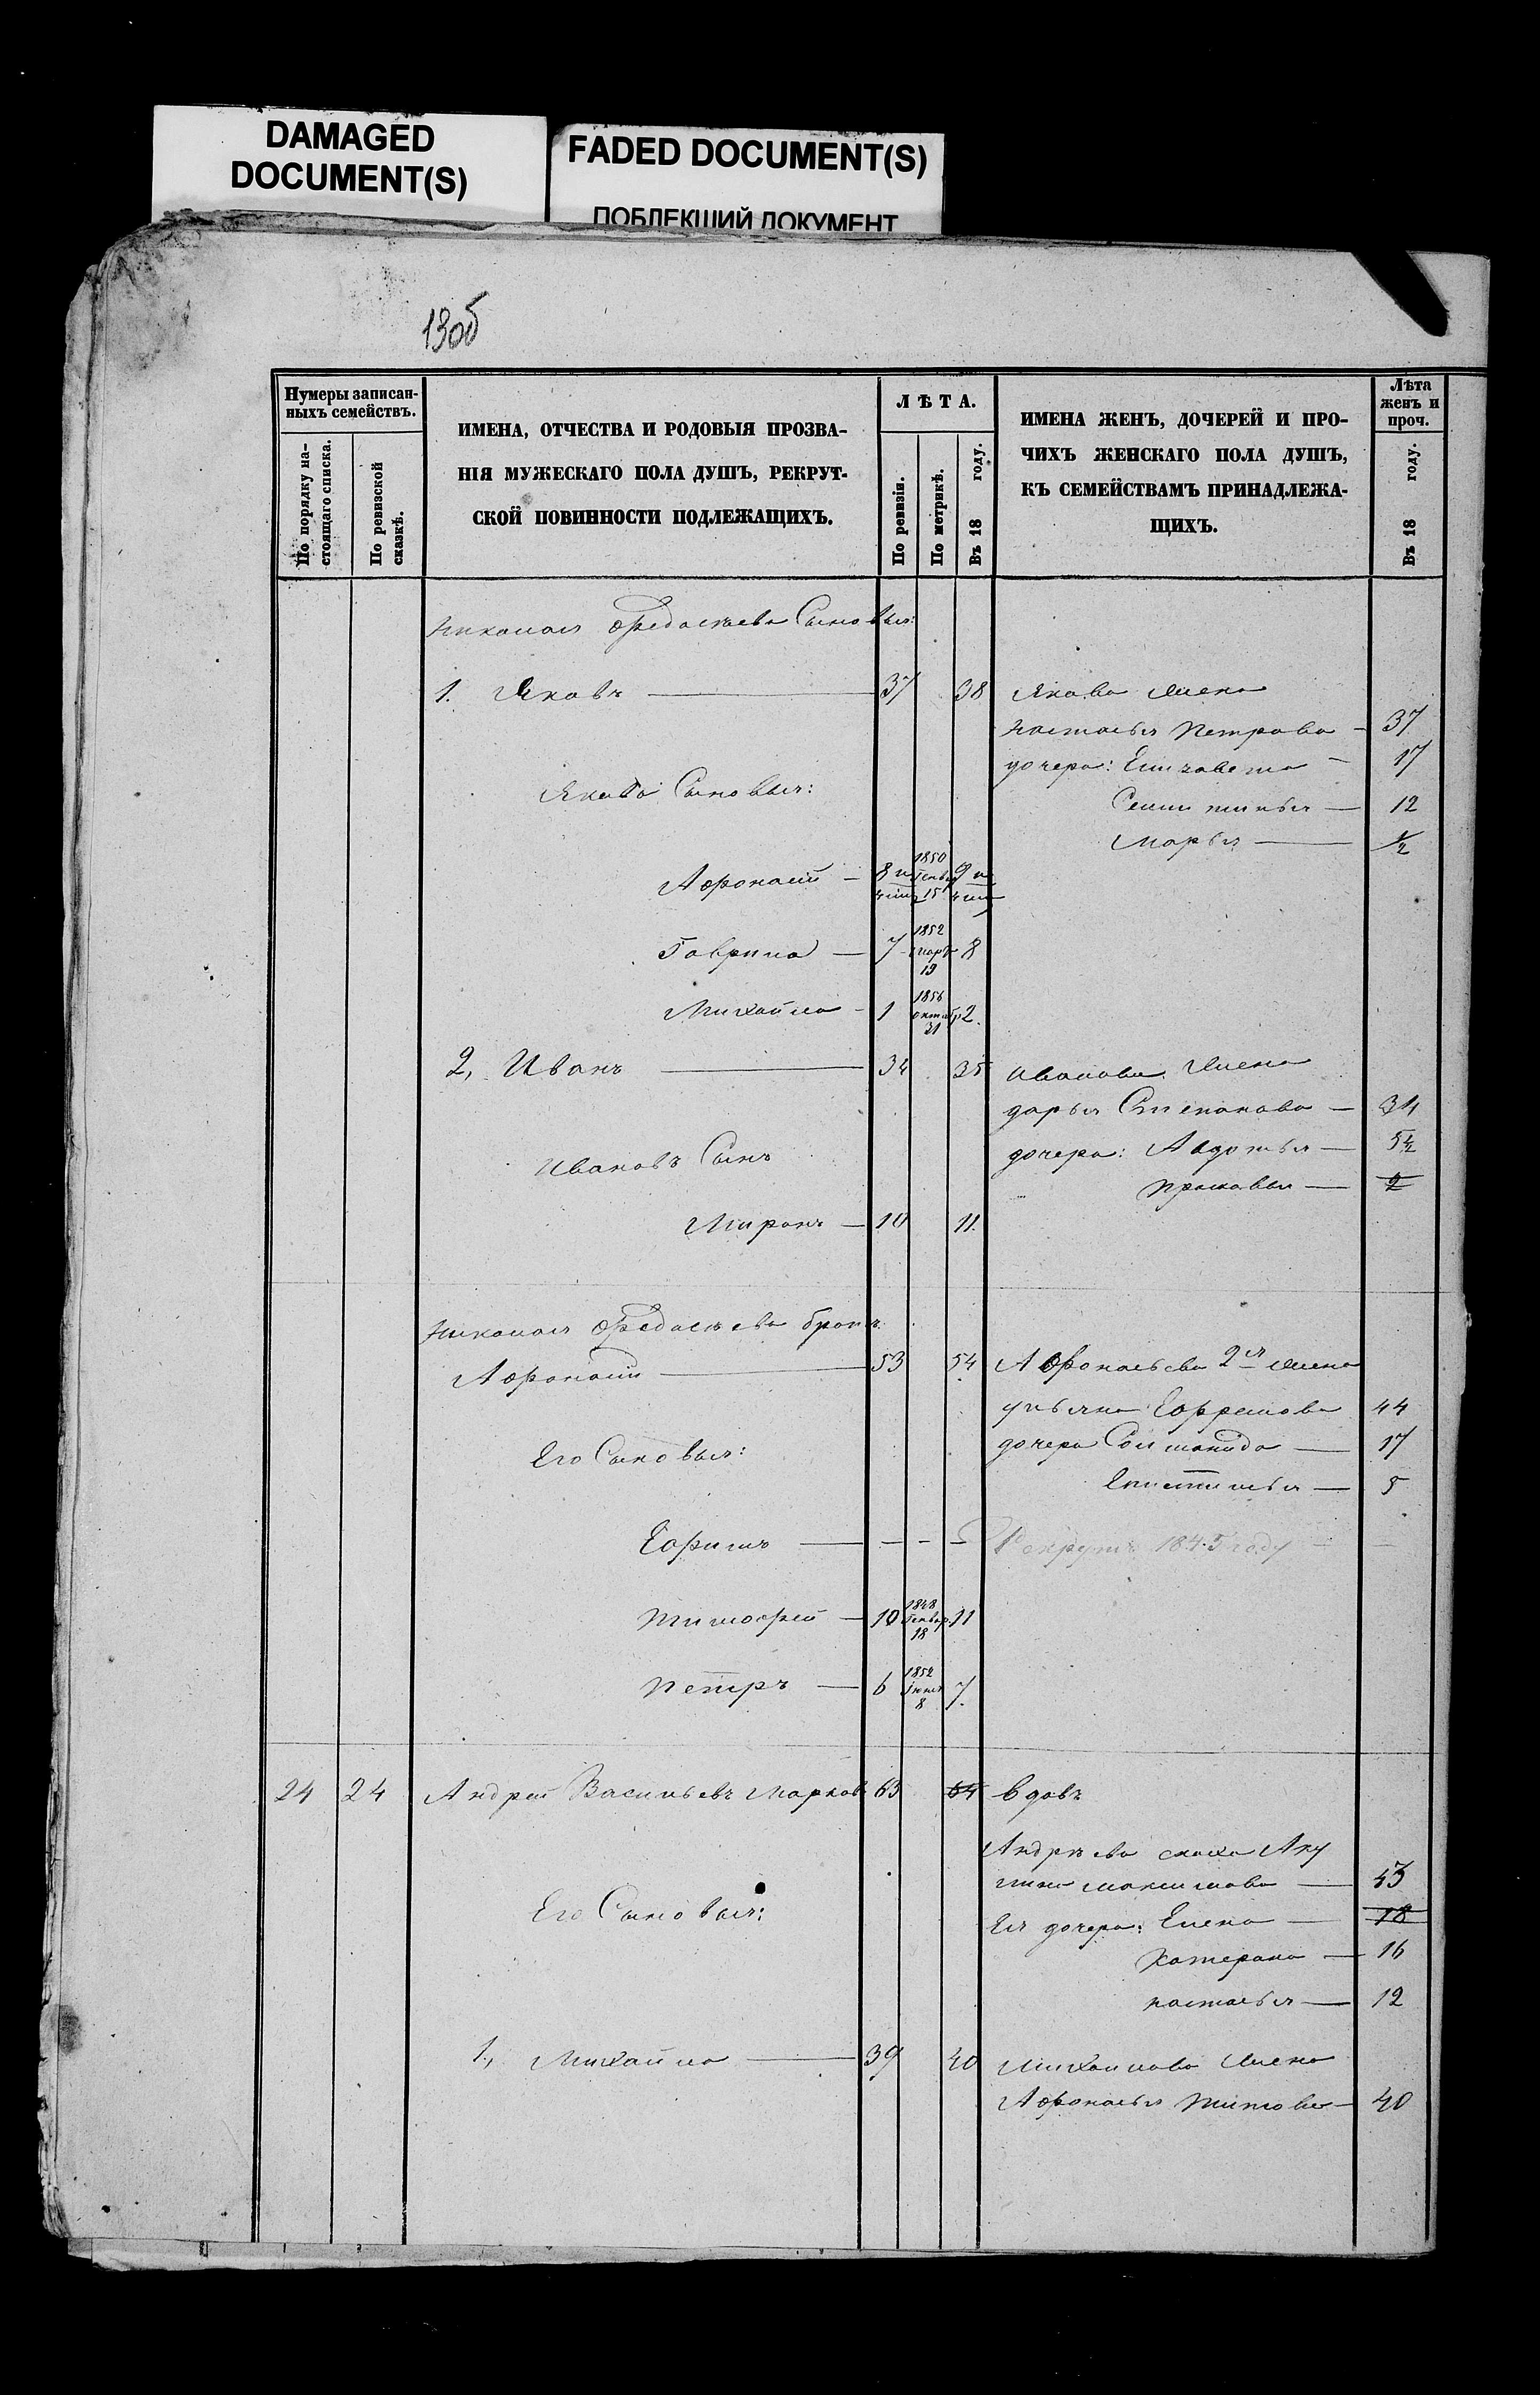 DAMAGED
DOCUMENT(S)
FADED DOCUMENT(S)
ПОБЛЕКШИЙ ДОКУМЕНТ
130б
Нумеры записан-
ныхъ семействъ.
По порядку на-
стоящаго списка.
По ревизской
сказкѣ.
ИМЕНА, ОТЧЕСТВА И РОДОВЫЯ ПРОЗВА-
НІЯ МУЖЕСКАГО ПОЛА ДУШЪ, РЕКРУТ-
СКОЙ ПОВИННОСТИ ПОДЛЕЖАЩИХЪ.
ЛѢТА.
По ревизіи.
По метрикѣ.
Въ 18 году.
ИМЕНА ЖЕНЪ, ДОЧЕРЕЙ И ПРО-
ЧИХЪ ЖЕНСКАГО ПОЛА ДУШЪ,
КЪ СЕМЕЙСТВАМЪ ПРИНАДЛЕЖА-
ЩИХЪ.
Лѣта
женъ и
проч.
Въ 18 году.
Сыновья:
1. Яковъ — 37 38 Якова жена
Настасья Петрова — 37
дочери: Елизавета — 17
Якова Сыновья:
12
Марья — 1/2
Афонасій — 8 и 1850 Генвар 15 9 и
Гаврила — 7 1852 Март 19 8
Михайла — 1 1856 октябр 31 2.
2, Иванъ — 34 35 Иванова Жена
дарья Степанова — 34
дочери: Авдотья — 5 1/2
Ивановъ Сынъ
Прасковья — 2
Миронъ — 10 11.
братъ
Афонасій — 53 54 Афонасьева 2я жена
ульяна Ефремова 44
дочери — 17
Его Сыновья:
— 5
Ефимъ — — — — Рекрутъ 1845 году — —
Тимофей — 10 1848 Генвар 18 11
Петръ — 6 1852 Іюня 8 7.
24 24 Андрей Васильевъ Марков 63 64 вдовъ
Андрѣева сноха Аку
лина Максимова — 43
Его Сыновья:
Ея дочери: Елена — 18
Катерина — 16
настасья — 12
1., Михайла — 39 40 Михайлова Жена
Афонасья Титова — 40